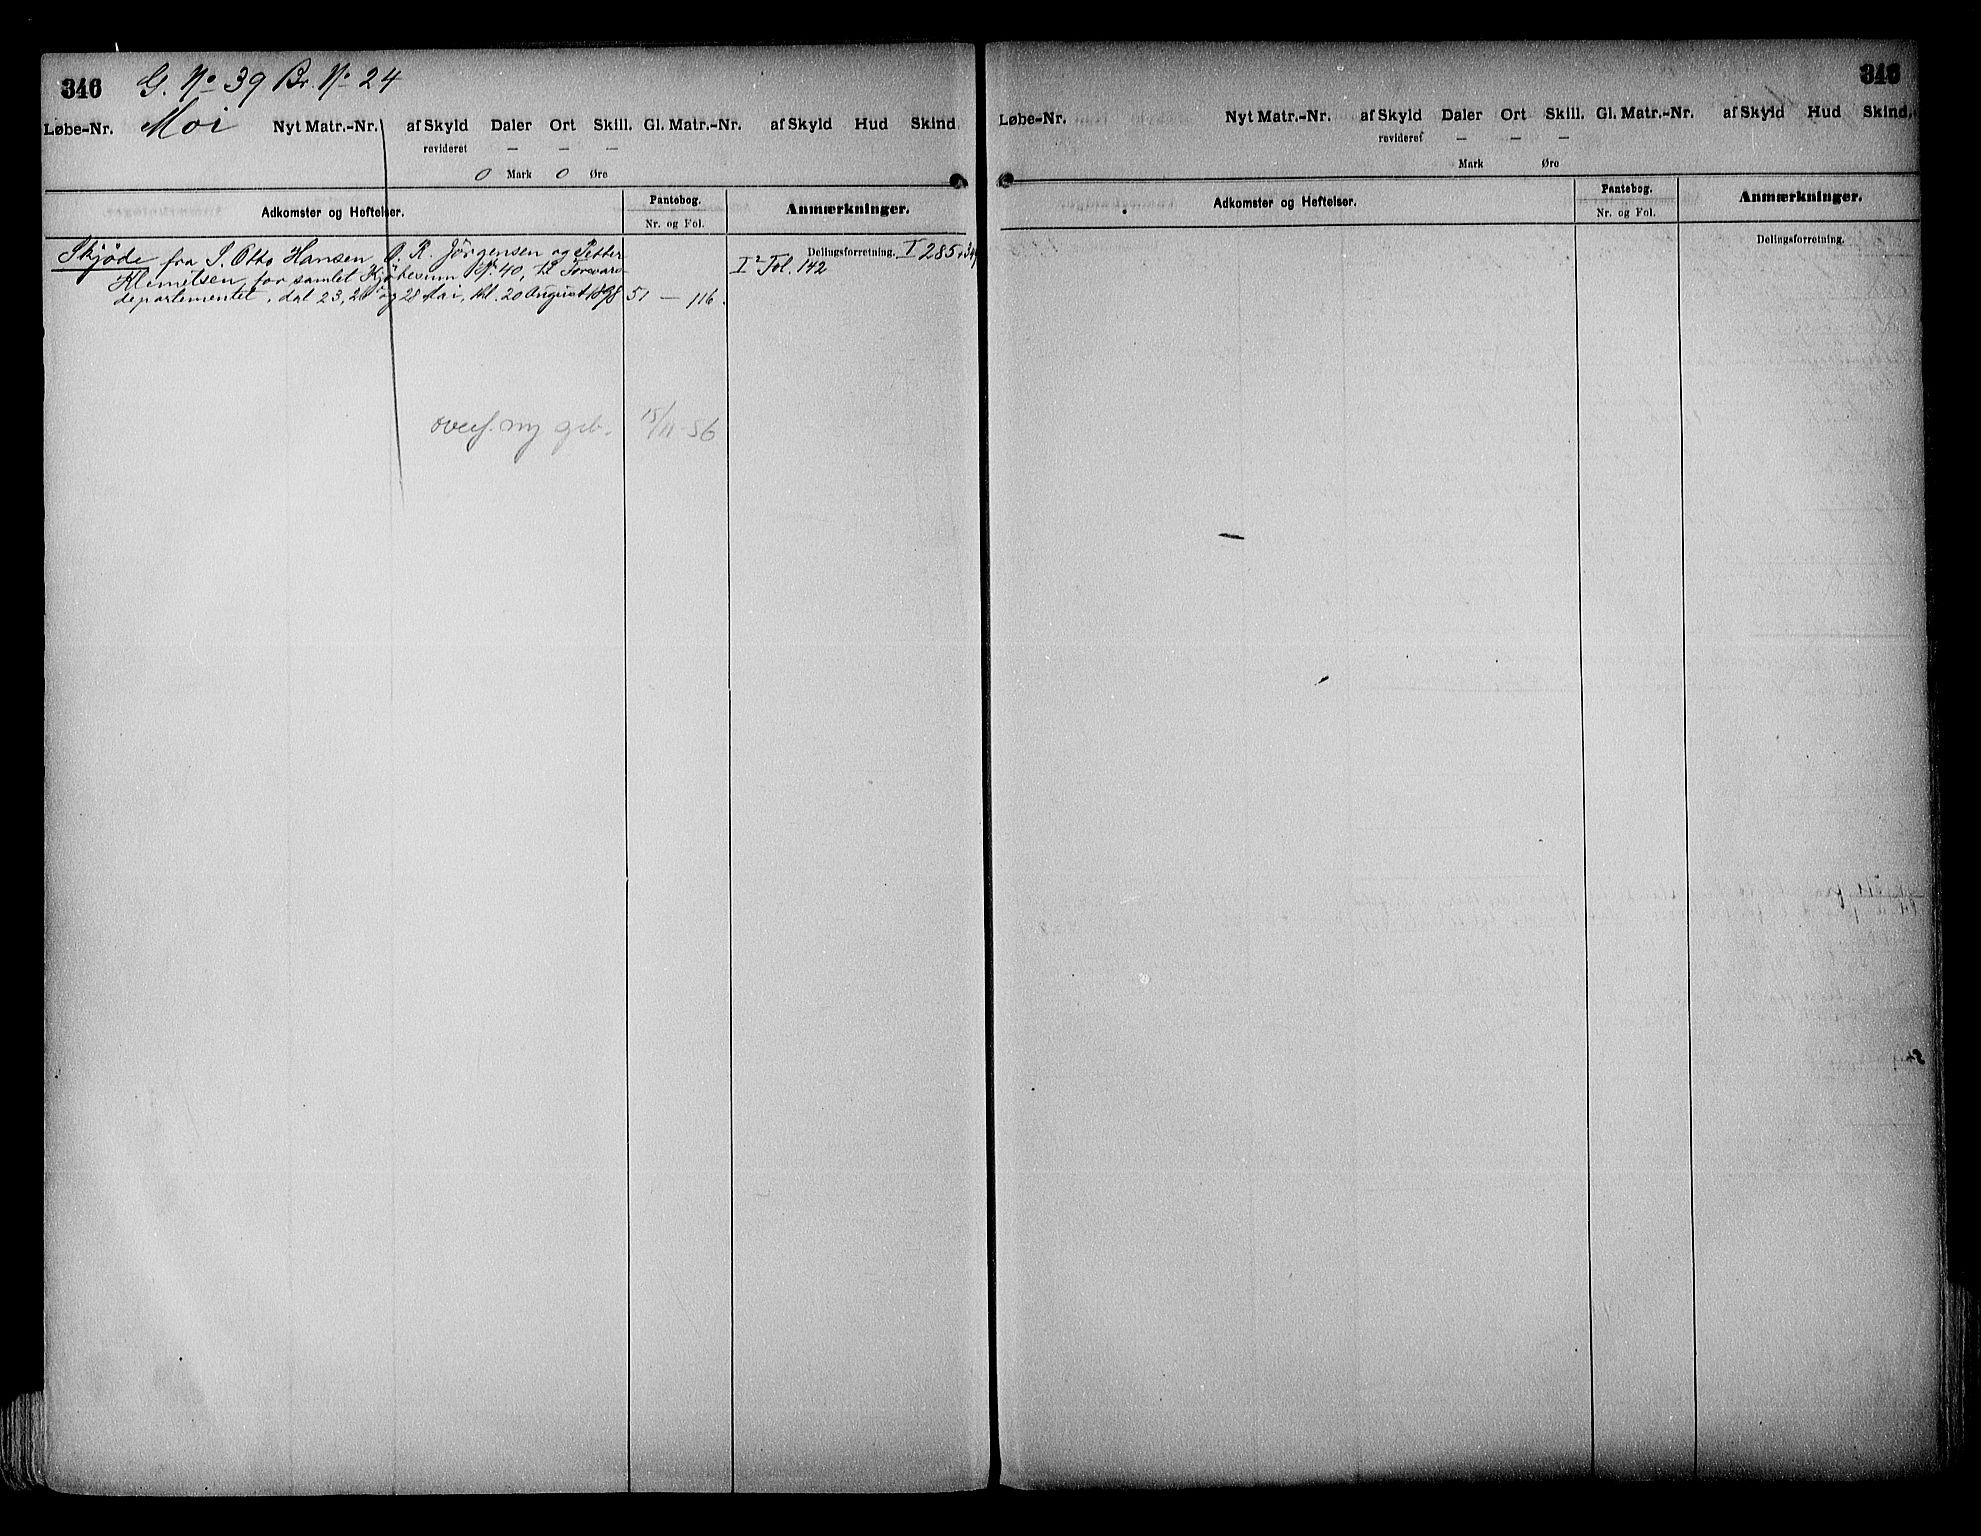 346 G. No 39 Br. No 24
Løbe-Nr. Moi Nyt Matr.-Nr. af Skyld Daler Ort Skill. Gl. Matr.-Nr. af Skyld Hud Skind
revideret — — —
0 Mark 0 Øre
Adkomster og Heftelser. Pantebog. Anmærkninger.
Nr. og Fol.
Skjøde fra S. Otto Hansen, O. R. Jørgensen og Petter Delingsforretning. I 285
Klemetsen, for samlet Kjøbesum 40, til Forsvars- I² Fol. 142
departementet, dat 23, og 28 Mai, thl. 20 August 1898 51 — 116.
overf. ny grb. 15/11-56
346
Løbe-Nr. Nyt Matr.-Nr. af Skyld Daler Ort Skill. Gl. Matr.-Nr. af Skyld Hud Skind.
revideret — — —
Mark Øre
Adkomster og Heftelser. Pantebog. Anmærkninger.
Nr. og Fol.
Delingsforretning.